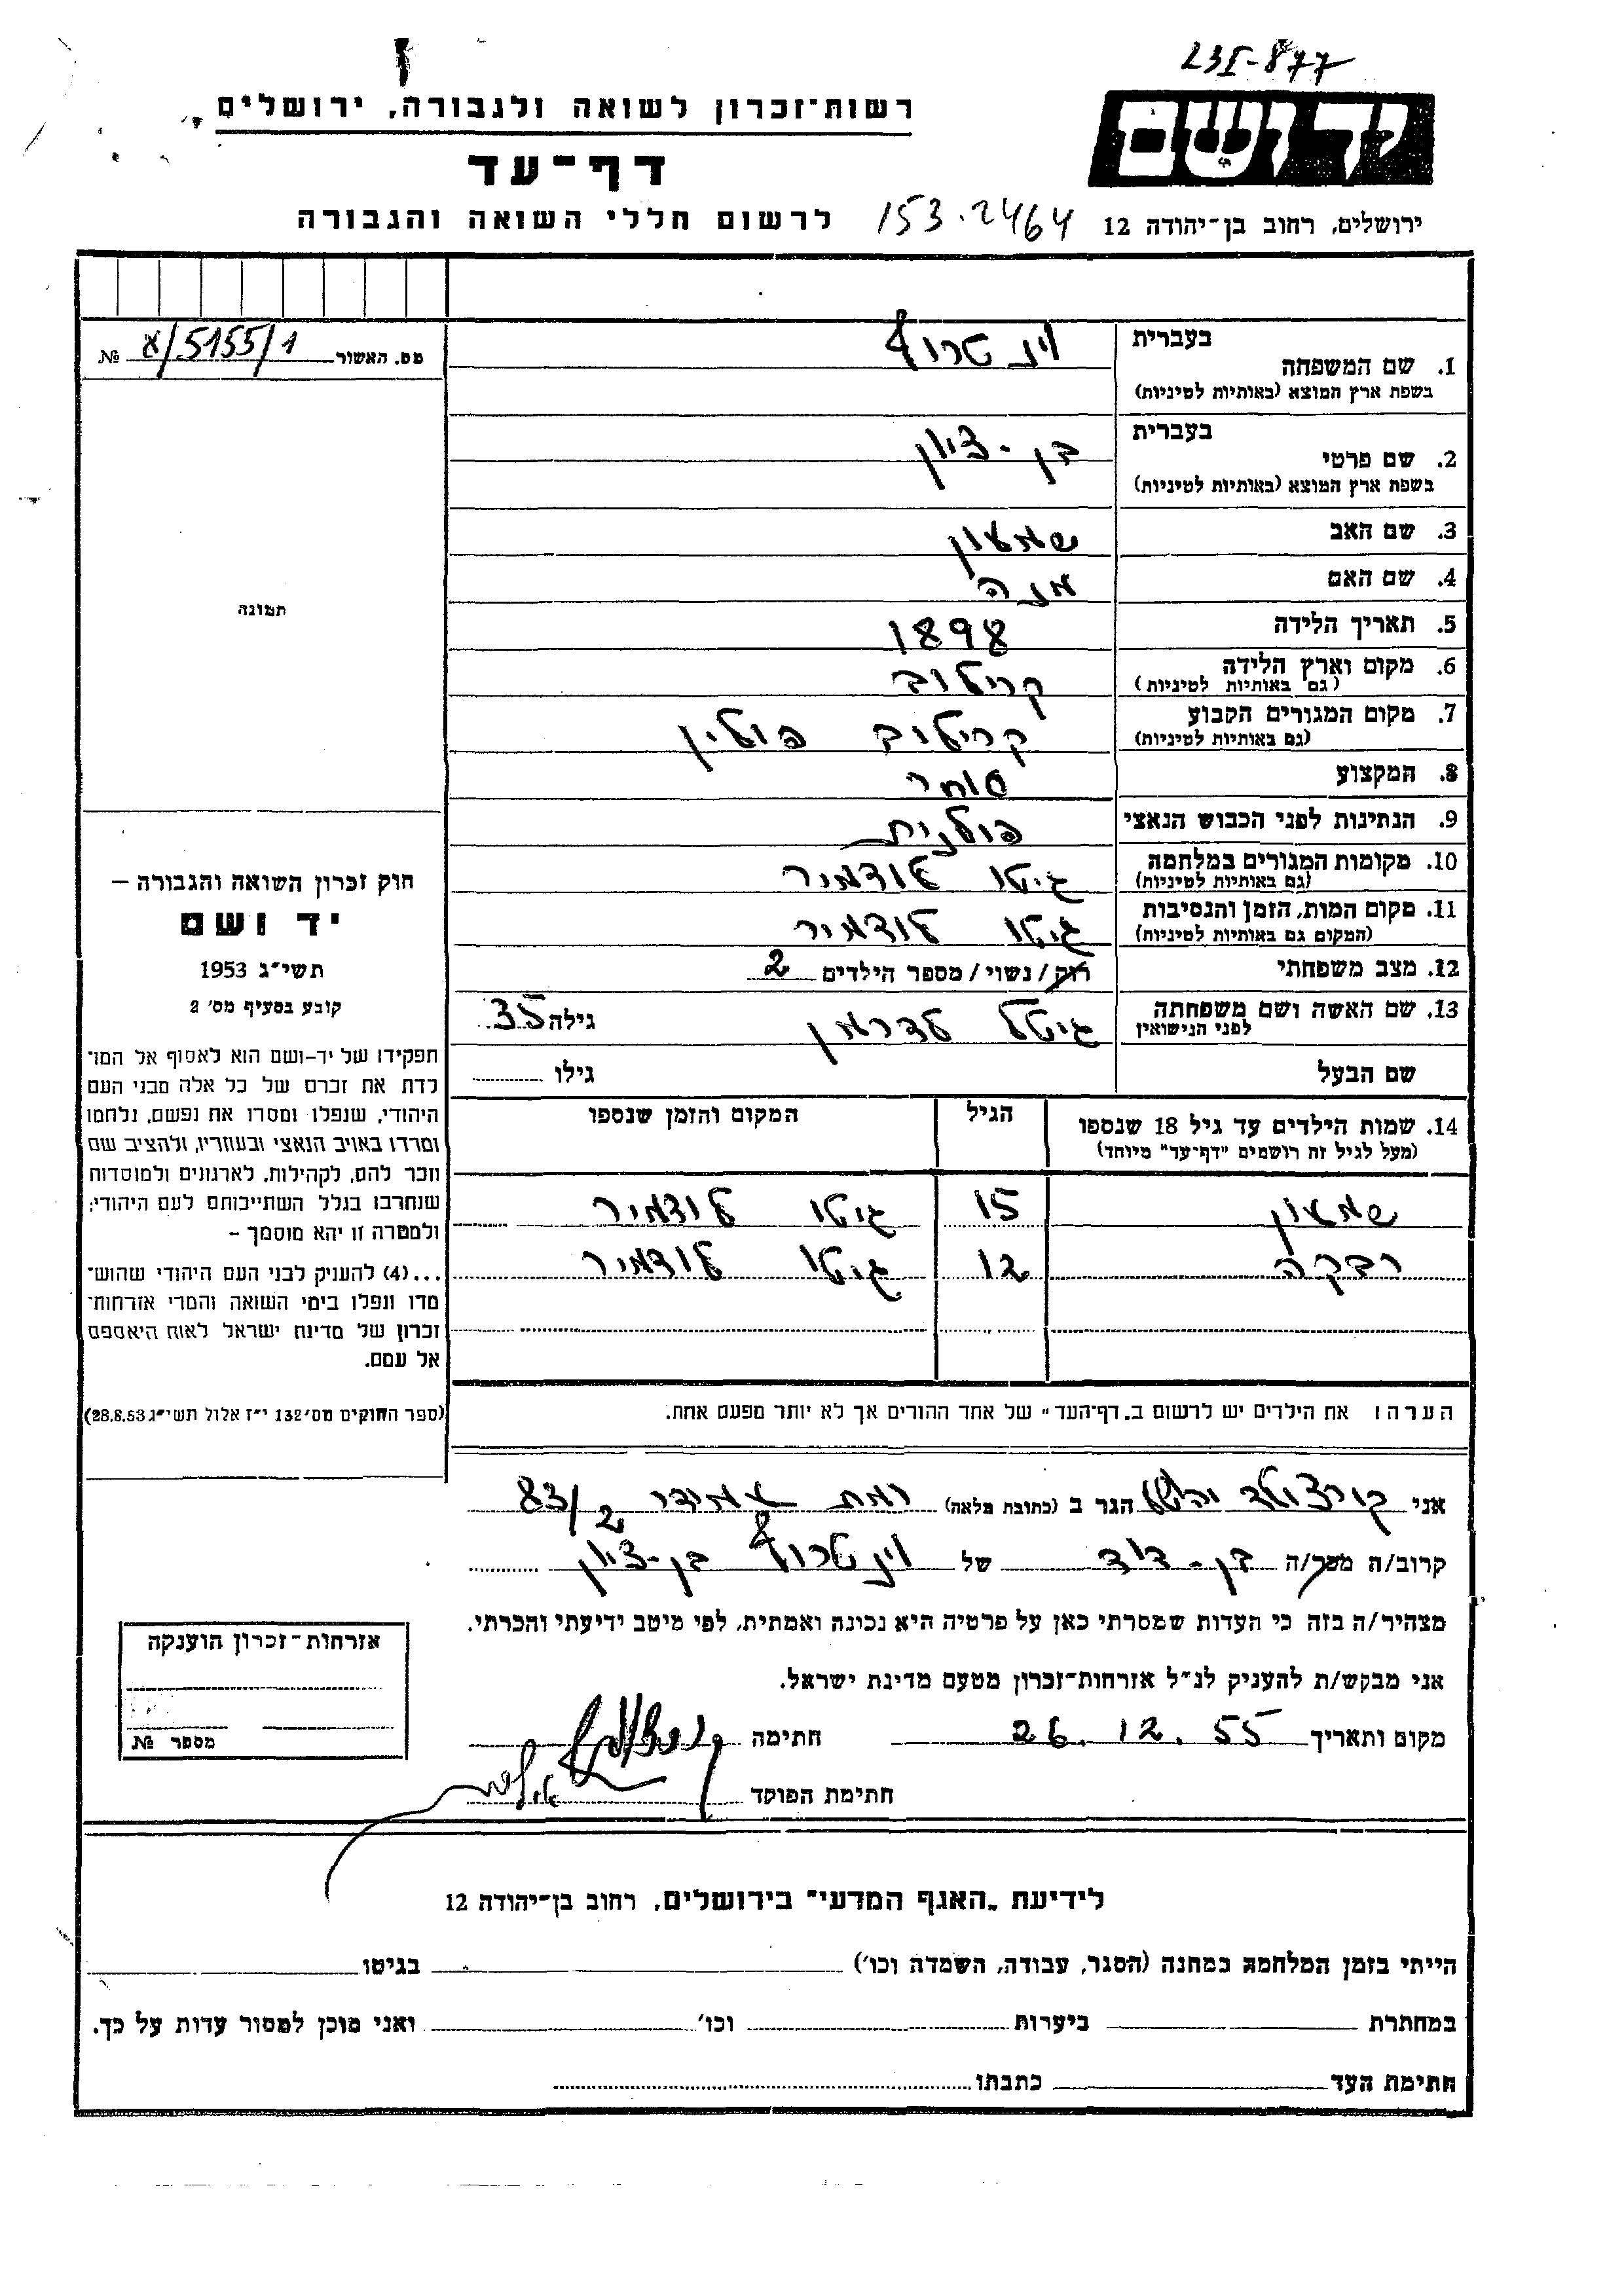 231-877
רשות־זכרון לשואה ולגבורה, ירושלים
יד ושם
דף־עד
לרשום חללי השואה והגבורה
153.2464
ירושלים, רחוב בן־יהודה 12
מס. האשור א/5155/1 №
תמונה
1. שם המשפחה
בעברית וינטרוף
בשפת ארץ המוצא (באותיות לטיניות)
2. שם פרטי
בעברית בן-ציון
בשפת ארץ המוצא (באותיות לטיניות)
3. שם האב שמעון
4. שם האם מנה
5. תאריך הלידה 1898
6. מקום וארץ הלידה קרילוב
(גם באותיות לטיניות)
7. מקום המגורים הקבוע קרילוב פולין
(גם באותיות לטיניות)
8. המקצוע סוחר
9. הנתינות לפני הכבוש הנאצי פולנית
10. מקומות המגורים במלחמה גיטו לודמיר
(גם באותיות לטיניות)
11. מקום המות, הזמן והנסיבות גיטו לודמיר
(המקום גם באותיות לטיניות)
12. מצב משפחתי רוק/נשוי/מספר הילדים 2
13. שם האשה ושם משפחתה גיטל לדרמן גילה 35
לפני הנישואין
שם הבעל גילו
14. שמות הילדים עד גיל 18 שנספו הגיל המקום והזמן שנספו
(מעל לגיל זה רושמים "דף־עד" מיוחד)
שמעון 15 גיטו לודמיר
רבקה 12 גיטו לודמיר
הערה: את הילדים יש לרשום ב„דף־העד" של אחד ההורים אך לא יותר מפעם אחת.
חוק זכרון השואה והגבורה —
יד ושם
תשי״ג 1953
קובע בסעיף מס׳ 2
תפקידו של יד־ושם הוא לאסוף אל המו־
לדת את זכרם של כל אלה מבני העם
היהודי, שנפלו ומסרו את נפשם, נלחמו
ומרדו באויב הנאצי ובעוזריו, ולהציב שם
וזכר להם, לקהילות, לארגונים ולמוסדות
שנחרבו בגלל השתייכותם לעם היהודי;
ולמטרה זו יהא מוסמך –
...(4) להעניק לבני העם היהודי שהוש־
מדו ונפלו בימי השואה והמרי אזרחות־
זכרון של מדינת ישראל לאות היאספם
אל עמם.
(ספר החוקים מס׳ 132 י״ז אלול תשי״ג 28.8.53)
אני הגר ב (כתובת מלאה) רמת עמידר 83/2
קרוב/ה מכר/ה בן-דוד של וינטרוף בן-ציון
מצהיר/ה בזה כי העדות שמסרתי כאן על פרטיה היא נכונה ואמתית, לפי מיטב ידיעתי והכרתי.
אני מבקש/ת להעניק לנ״ל אזרחות־זכרון מטעם מדינת ישראל.
מקום ותאריך 26.12.55 חתימה
חתימת הפוקד
אזרחות־זכרון הוענקה
מספר №
לידיעת „האגף המדעי" בירושלים, רחוב בן־יהודה 12
הייתי בזמן המלחמה במחנה (הסגר, עבודה, השמדה וכו׳) בגיטו
במחתרת ביערות וכו׳ ואני מוכן למסור עדות על כך.
חתימת העד כתבתו